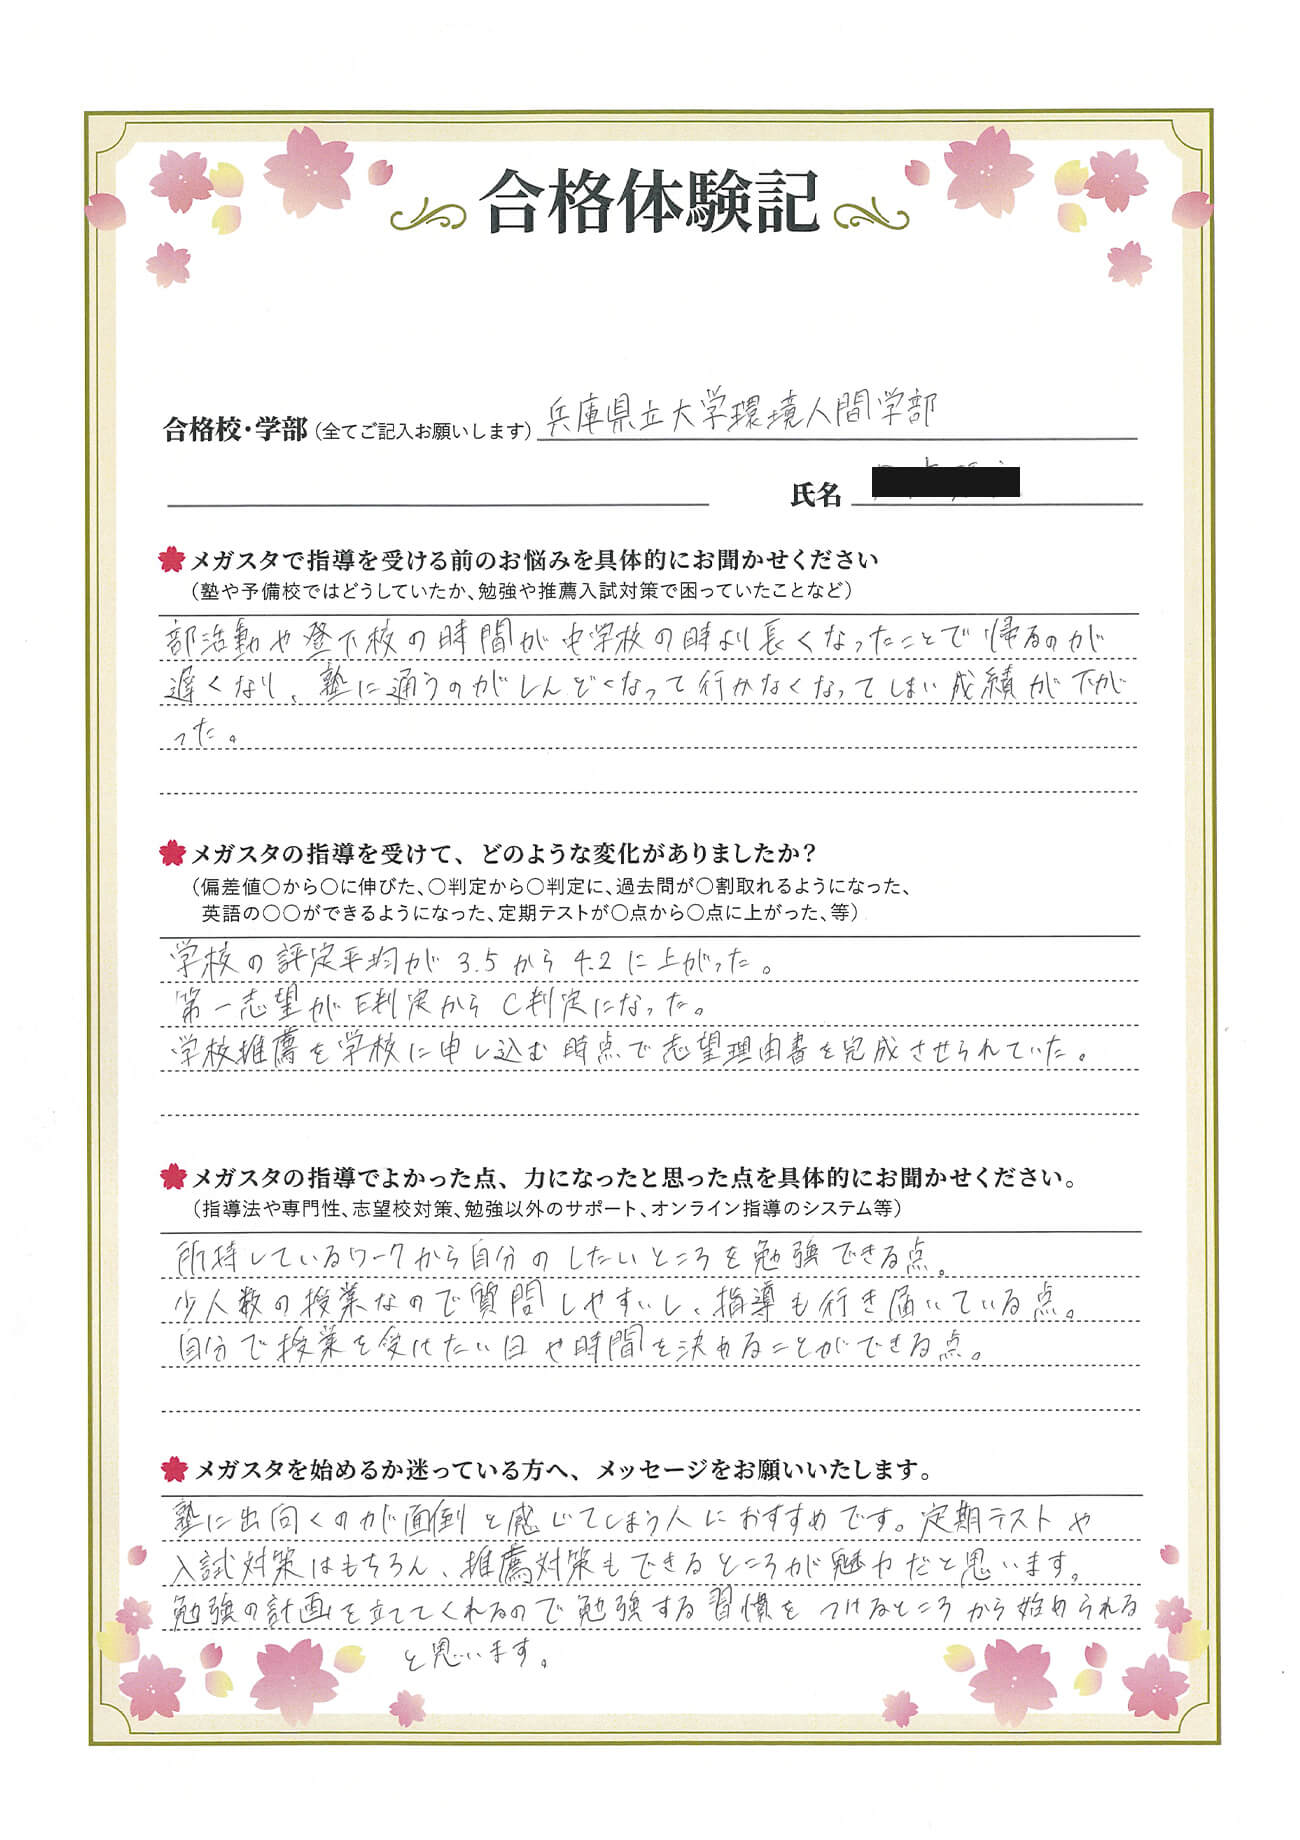 合格体験記
合格校・学部(全てご記入お願いします) 兵庫県立大学環境人間学部
氏名
メガスタで指導を受ける前のお悩みを具体的にお聞かせください
(塾や予備校ではどうしていたか、勉強や推薦入試対策で困っていたことなど)
部活動や登下校の時間が中学校の時より長くなったことで帰るのが
遅くなり、塾に通うのがしんどくなって行かなくなってしまい成績が下が
った。
メガスタの指導を受けて、どのような変化がありましたか?
(偏差値〇から〇に伸びた、〇判定から〇判定に、過去問が〇割取れるようになった、
英語の〇〇ができるようになった、定期テストが〇点から〇点に上がった、等)
学校の評定平均が3.5から4.2に上がった。
第一志望がE判定からC判定になった。
学校推薦を学校に申し込む時点で志望理由書を完成させられていた。
メガスタの指導でよかった点、力になったと思った点を具体的にお聞かせください。
(指導法や専門性、志望校対策、勉強以外のサポート、オンライン指導のシステム等)
所持しているワークから自分のしたいところを勉強できる点。
少人数の授業なので質問しやすいし、指導も行き届いている点。
自分で授業を受けたい日や時間を決めることができる点。
メガスタを始めるか迷っている方へ、メッセージをお願いいたします。
塾に出向くのが面倒と感じてしまう人におすすめです。定期テストや
入試対策はもちろん、推薦対策もできるところが魅力だと思います。
勉強の計画を立ててくれるので勉強する習慣をつけるところから始められる
と思います。